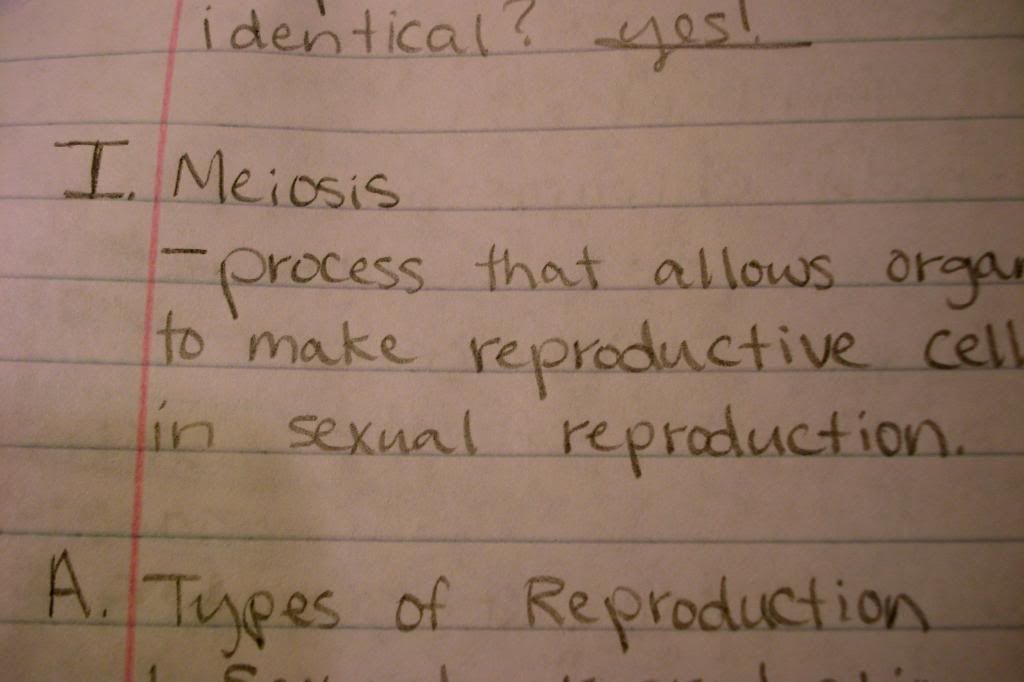 identical? yes!
I. Meiosis
- process that allows organ
to make reproductive cell
in sexual reproduction.
A. Types of Reproduction